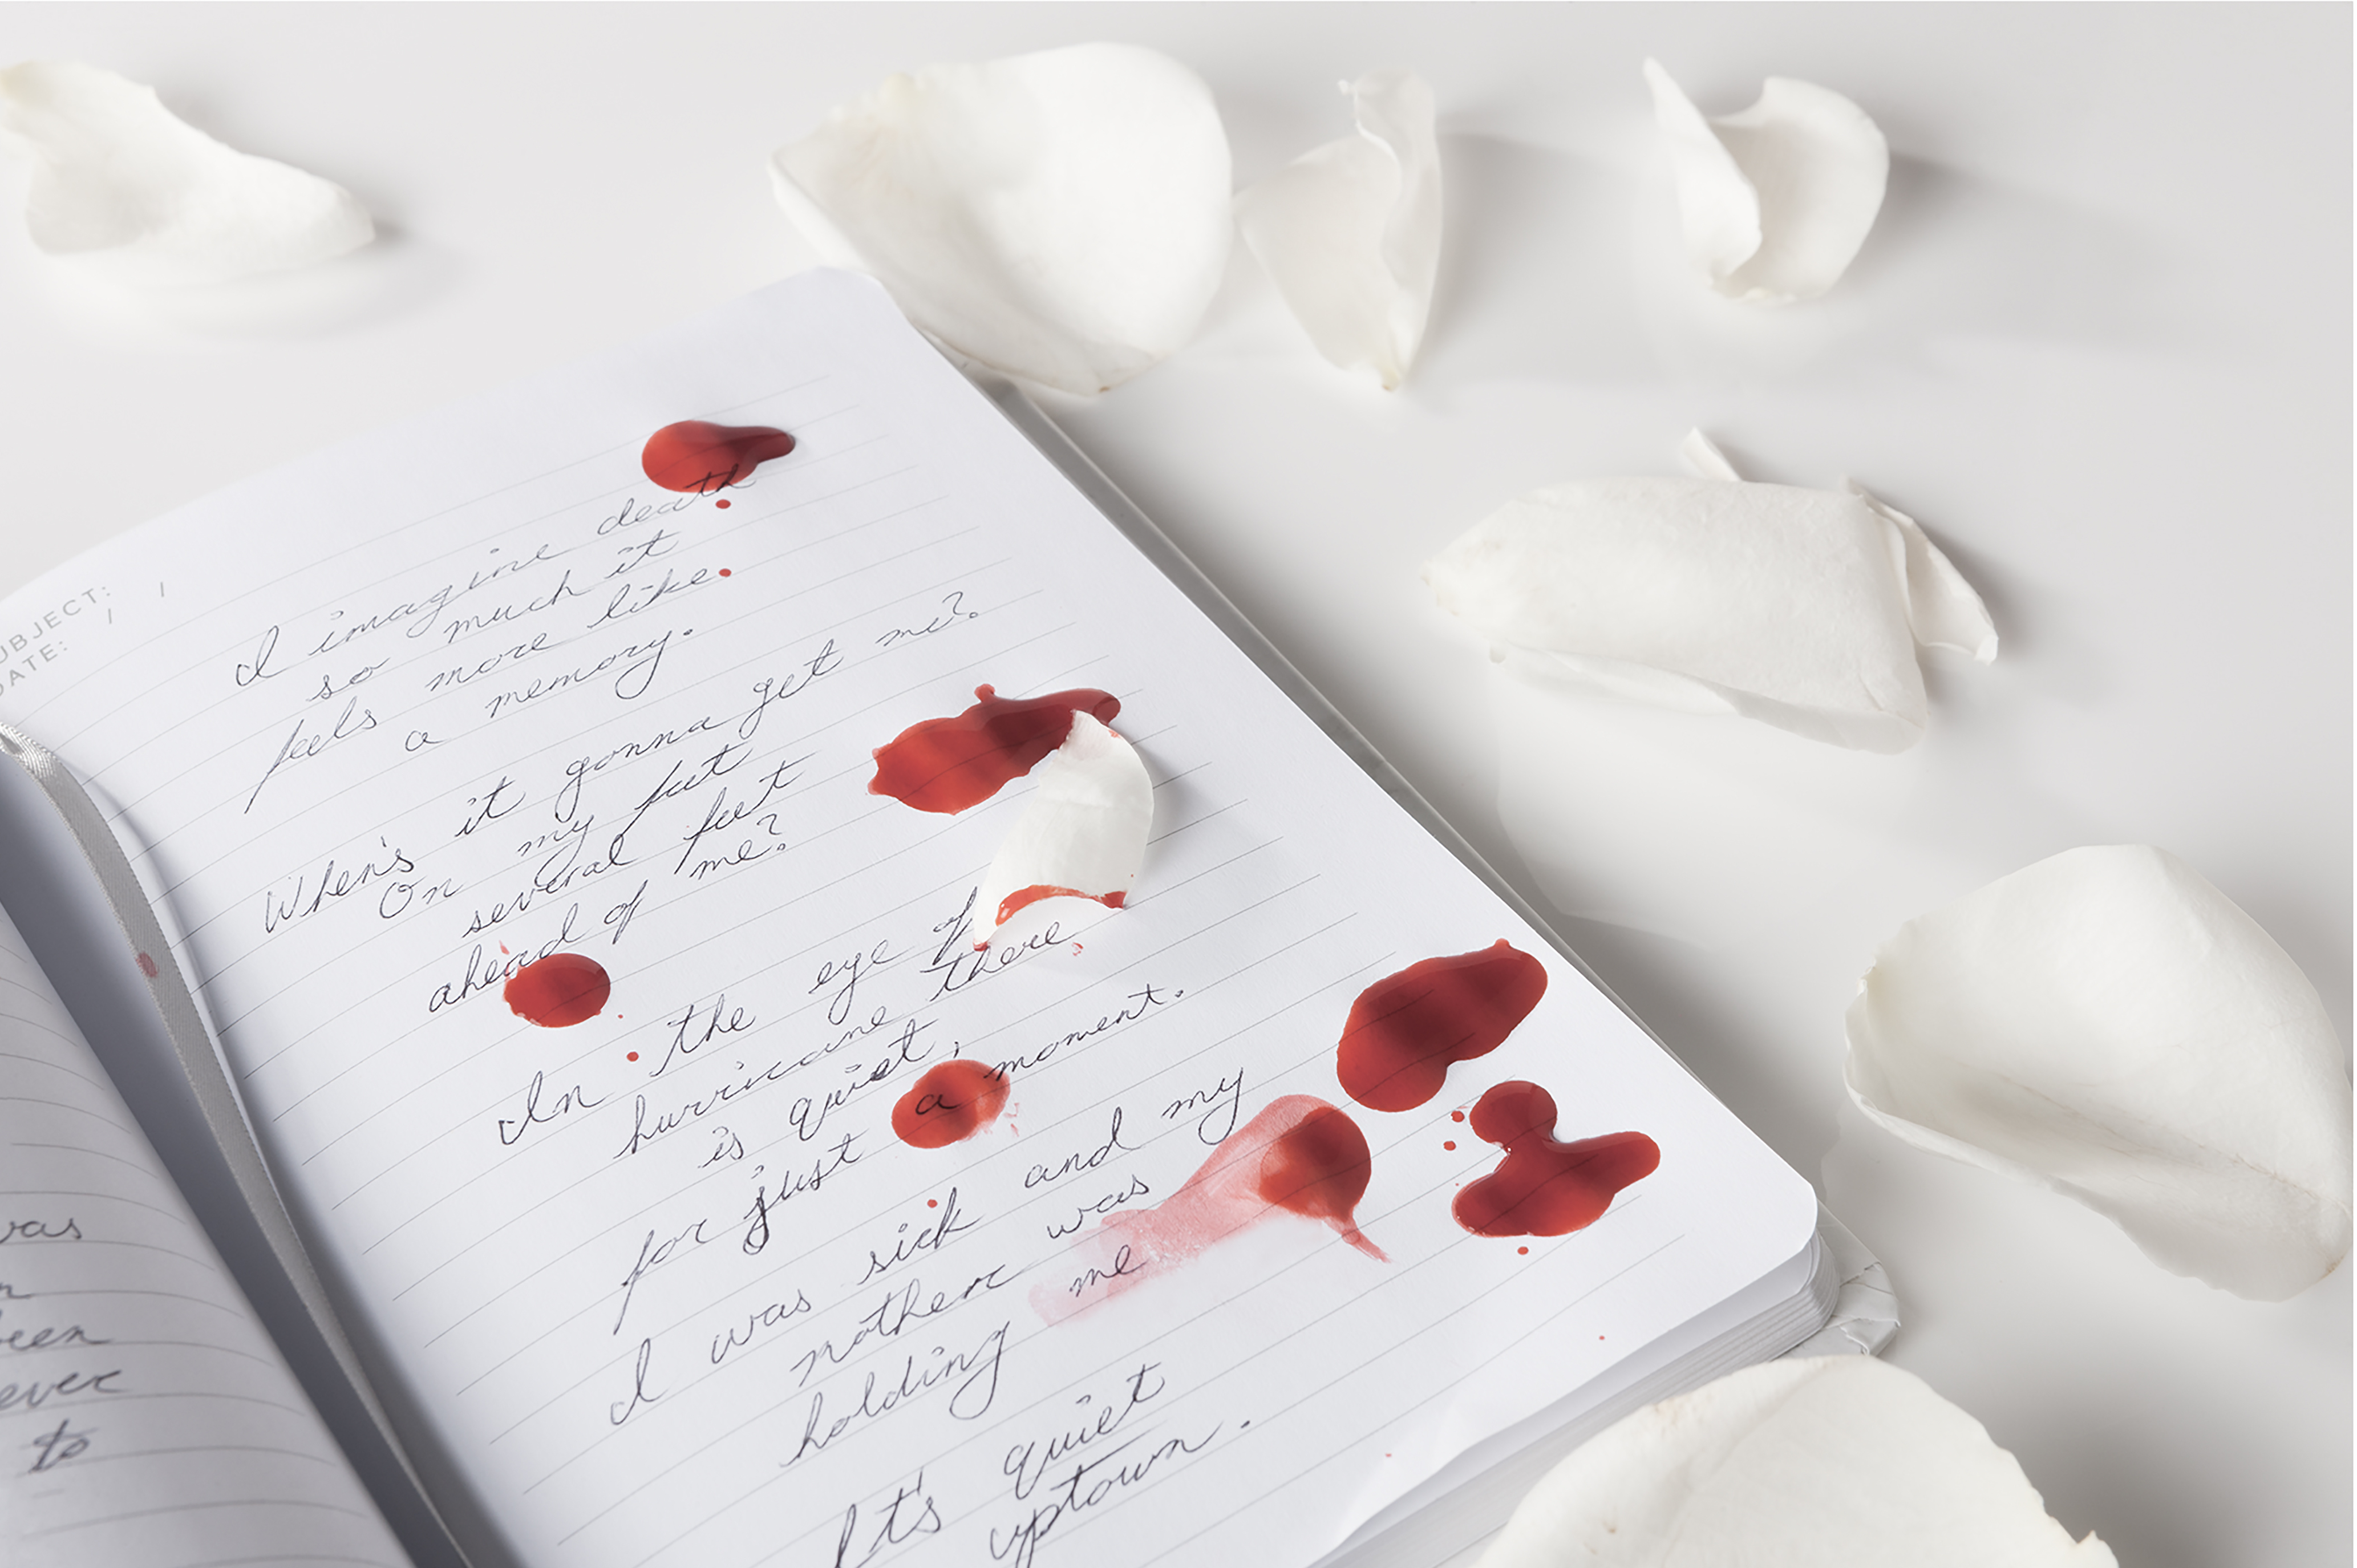 UBJECT: / /
DATE:
I imagine death
so much it
feels more like
a memory.
When's it gonna get me?
On my feet
several feet
ahead of me?
In the eye of
hurricane there
is quiet,
for just a moment.
I was sick and my
mother was
holding me
It's quiet
uptown.
was
een
ever
to